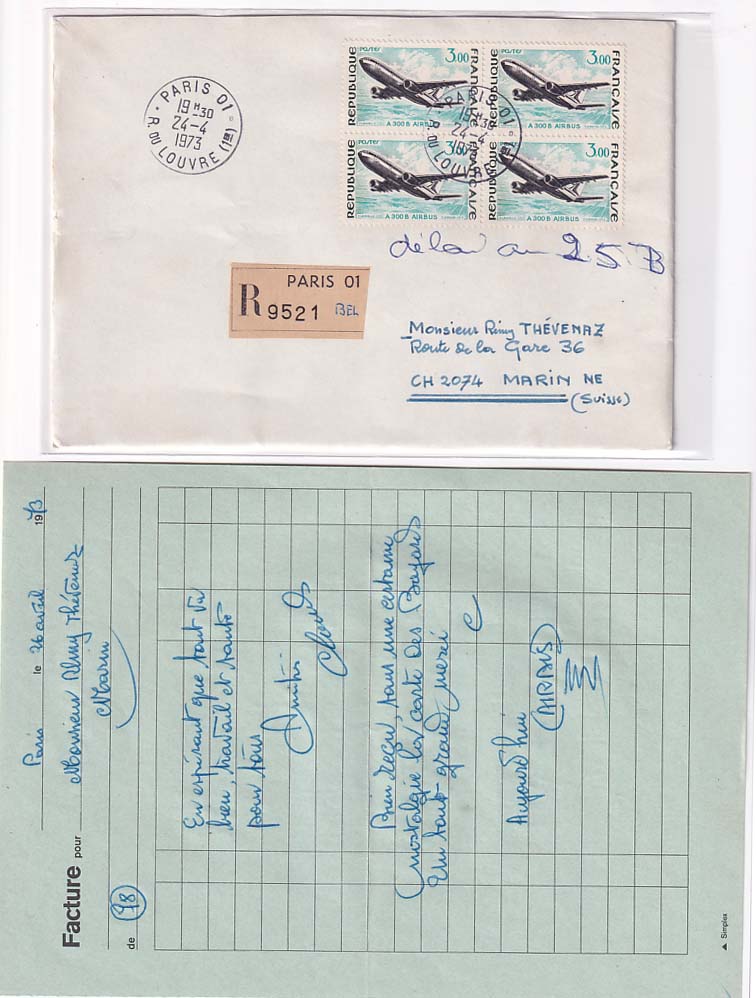 PARIS 01
19H30
24-4
1973
R. DU LOUVRE (1er)
POSTES 3.00
REPUBLIQUE FRANCAISE
A 300 B AIRBUS
POSTES 3.00
REPUBLIQUE FRANCAISE
A 300 B AIRBUS
POSTES 3.00
REPUBLIQUE FRANCAISE
A 300 B AIRBUS
3.00
REPUBLIQUE FRANCAISE
A 300 B AIRBUS
PARIS 01
19H30
24-4
1973
R. DU LOUVRE
au 25
PARIS 01
R 9521 BEL
Monsieur Rémy THÉVENAZ
Route de la Gare 36
CH 2074 MARIN NE
(Suisse)
Paris le 26 avril 1973
Facture pour Monsieur Rémy Thévenaz
Marin
de 98
En espérant que tout va
bien, travail et santé
pour tous
Amitié
Bien reçu, sans une certaine
nostalgie la carte des Bayards
Un tout grand merci
Aujourd'hui
▲ Simplex